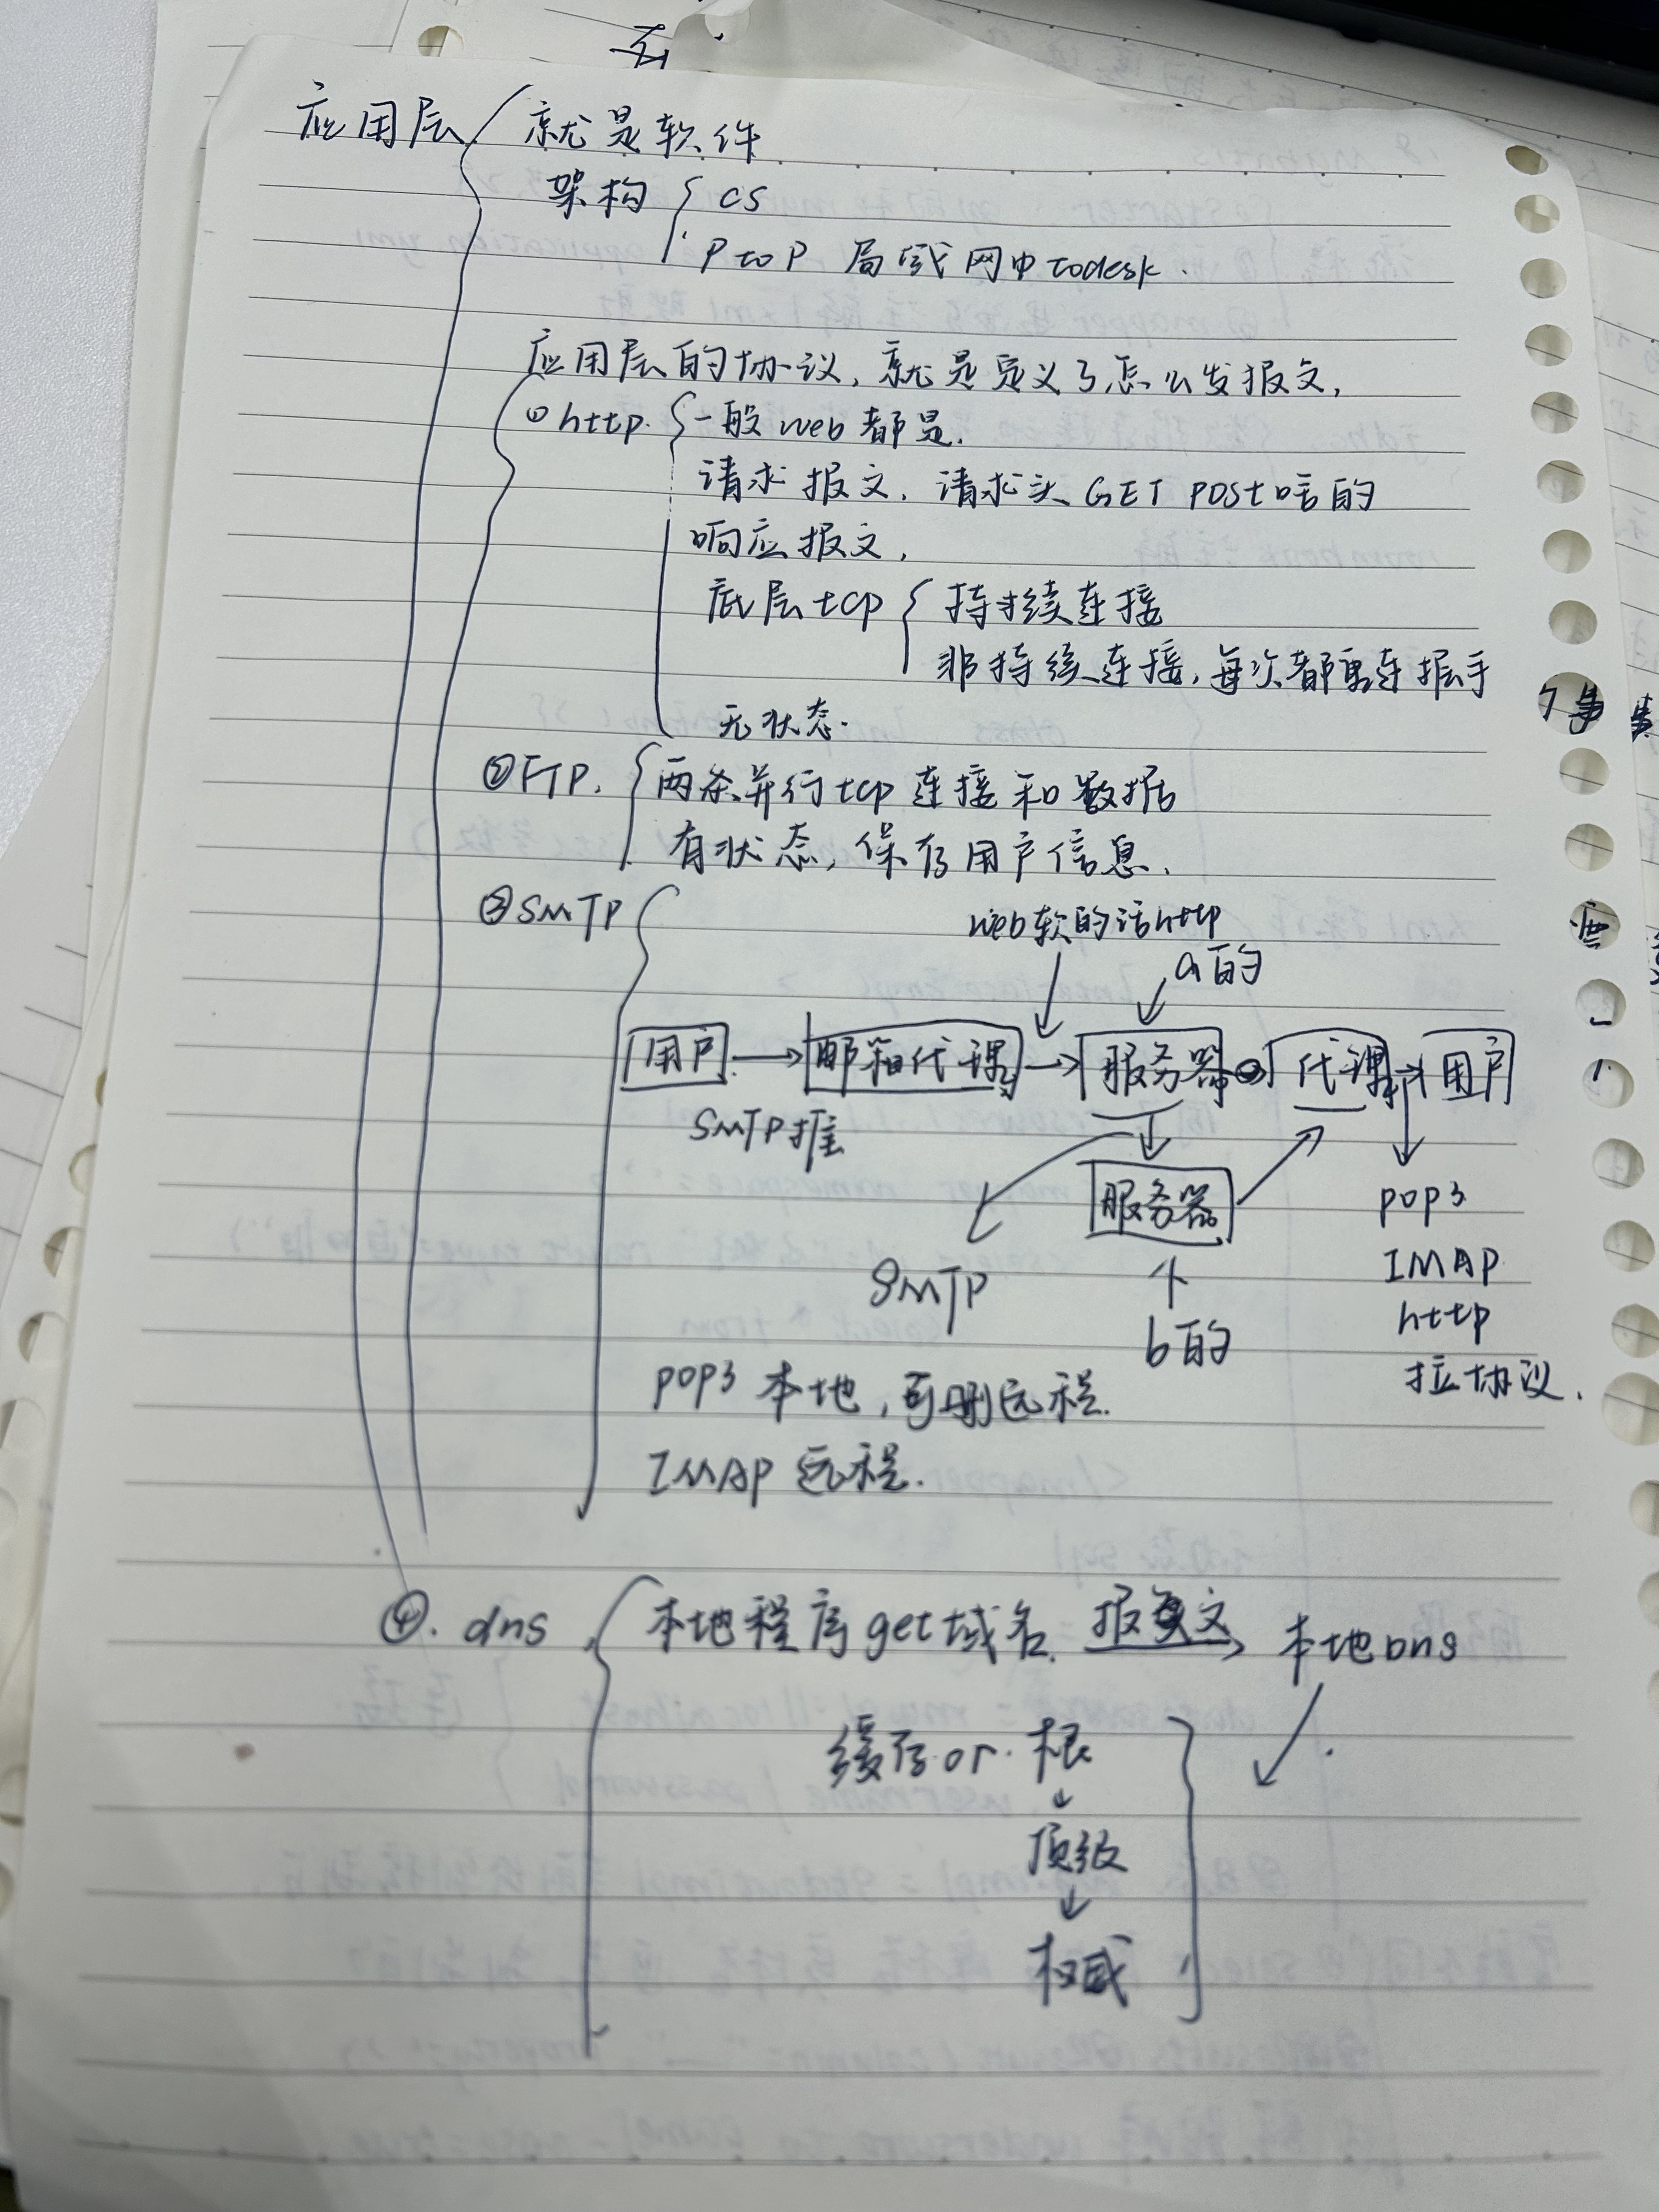 应用层 就是软件
架构 CS
P to P 局域网中todesk.
应用层的协议，就是定义了怎么发报文，
① http. 一般web都是.
请求报文，请求头GET POST啥的
响应报文，
底层tcp 持续连接
非持续连接，每次都重连握手
无状态.
② FTP. 两条并行tcp连接和数据
有状态，保存用户信息.
③ SMTP
web软的话http
a的
用户 → 邮箱代理 → 服务器 代理 → 用户
SMTP推
服务器
pop3
SMTP
IMAP
b的
http
拉协议.
pop3 本地，可删远程.
IMAP 远程.
④. dns 本地程序get域名 报文 本地DNS
缓存or. 根
顶级
权威